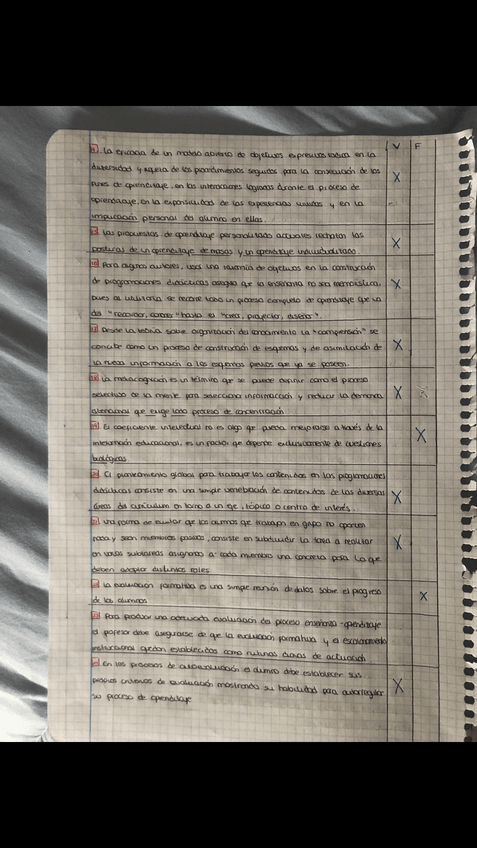 V F
La eficacia de un modelo abierto de objetivos expresivos radica en la
diversidad y riqueza de los procedimientos seguidos para la consecución de los
fines de aprendizaje, en las interacciones logradas durante el proceso de
aprendizaje, en la expositividad de las experiencias vividas y en la
implicación personal do alumno en ellas. X
Las propuestas de aprendizaje personalizado actuales rechazan las
posturas de un aprendizaje de masas y un aprendizaje individualizado. X
Para algunos autores, usar una taxonomía de objetivos en la construcción
de programaciones didácticas asegura que la enseñanza no sea memorística, X
pues al utilizarla se recorre todo un proceso completo de aprendizaje que va
del "reconocer, conocer" hasta el "crear, proyectar, diseñar".
Desde la teoría sobre organización del conocimiento la "comprensión" se
concibe como un proceso de construcción de esquemas y de asimilación de X
la nueva información a los esquemas previos que ya se poseen.
La metacognición es un término que se puede definir como el proceso
selectivo de la mente para seleccionar información y reducir la demanda X
atencional que exige todo proceso de concentración
El coeficiente intelectual no es algo que pueda mejorarse a través de la
intervención educacional, es un factor que depende exclusivamente de cuestiones X
biológicas.
El planteamiento global para trabajar los contenidos en las programaciones
didácticas consiste en una simple vinculación de contenidos de las diversas
áreas del currículum en torno a un eje, tópico o centro de interés. X
Una forma de evitar que los alumnos que trabajan en grupo no aporten
nada y sean miembros pasivos, consiste en subdividir la tarea a realizar X
en varias subtareas asignando a cada miembro una concreta para la que
deben adoptar distintos roles
La evaluación formativa es una simple reunión de datos sobre el progreso
de los alumnos X
Para producir una adecuada evaluación do proceso enseñanza-aprendizaje
el profesor debe asegurarse de que la evaluación formativa y el
institucional queden establecidos como rutinas diarias de actuación
En los procesos de autoevaluación el alumno debe establecer sus
propios criterios de evaluación mostrando su habilidad para autorregular X
su proceso de aprendizaje